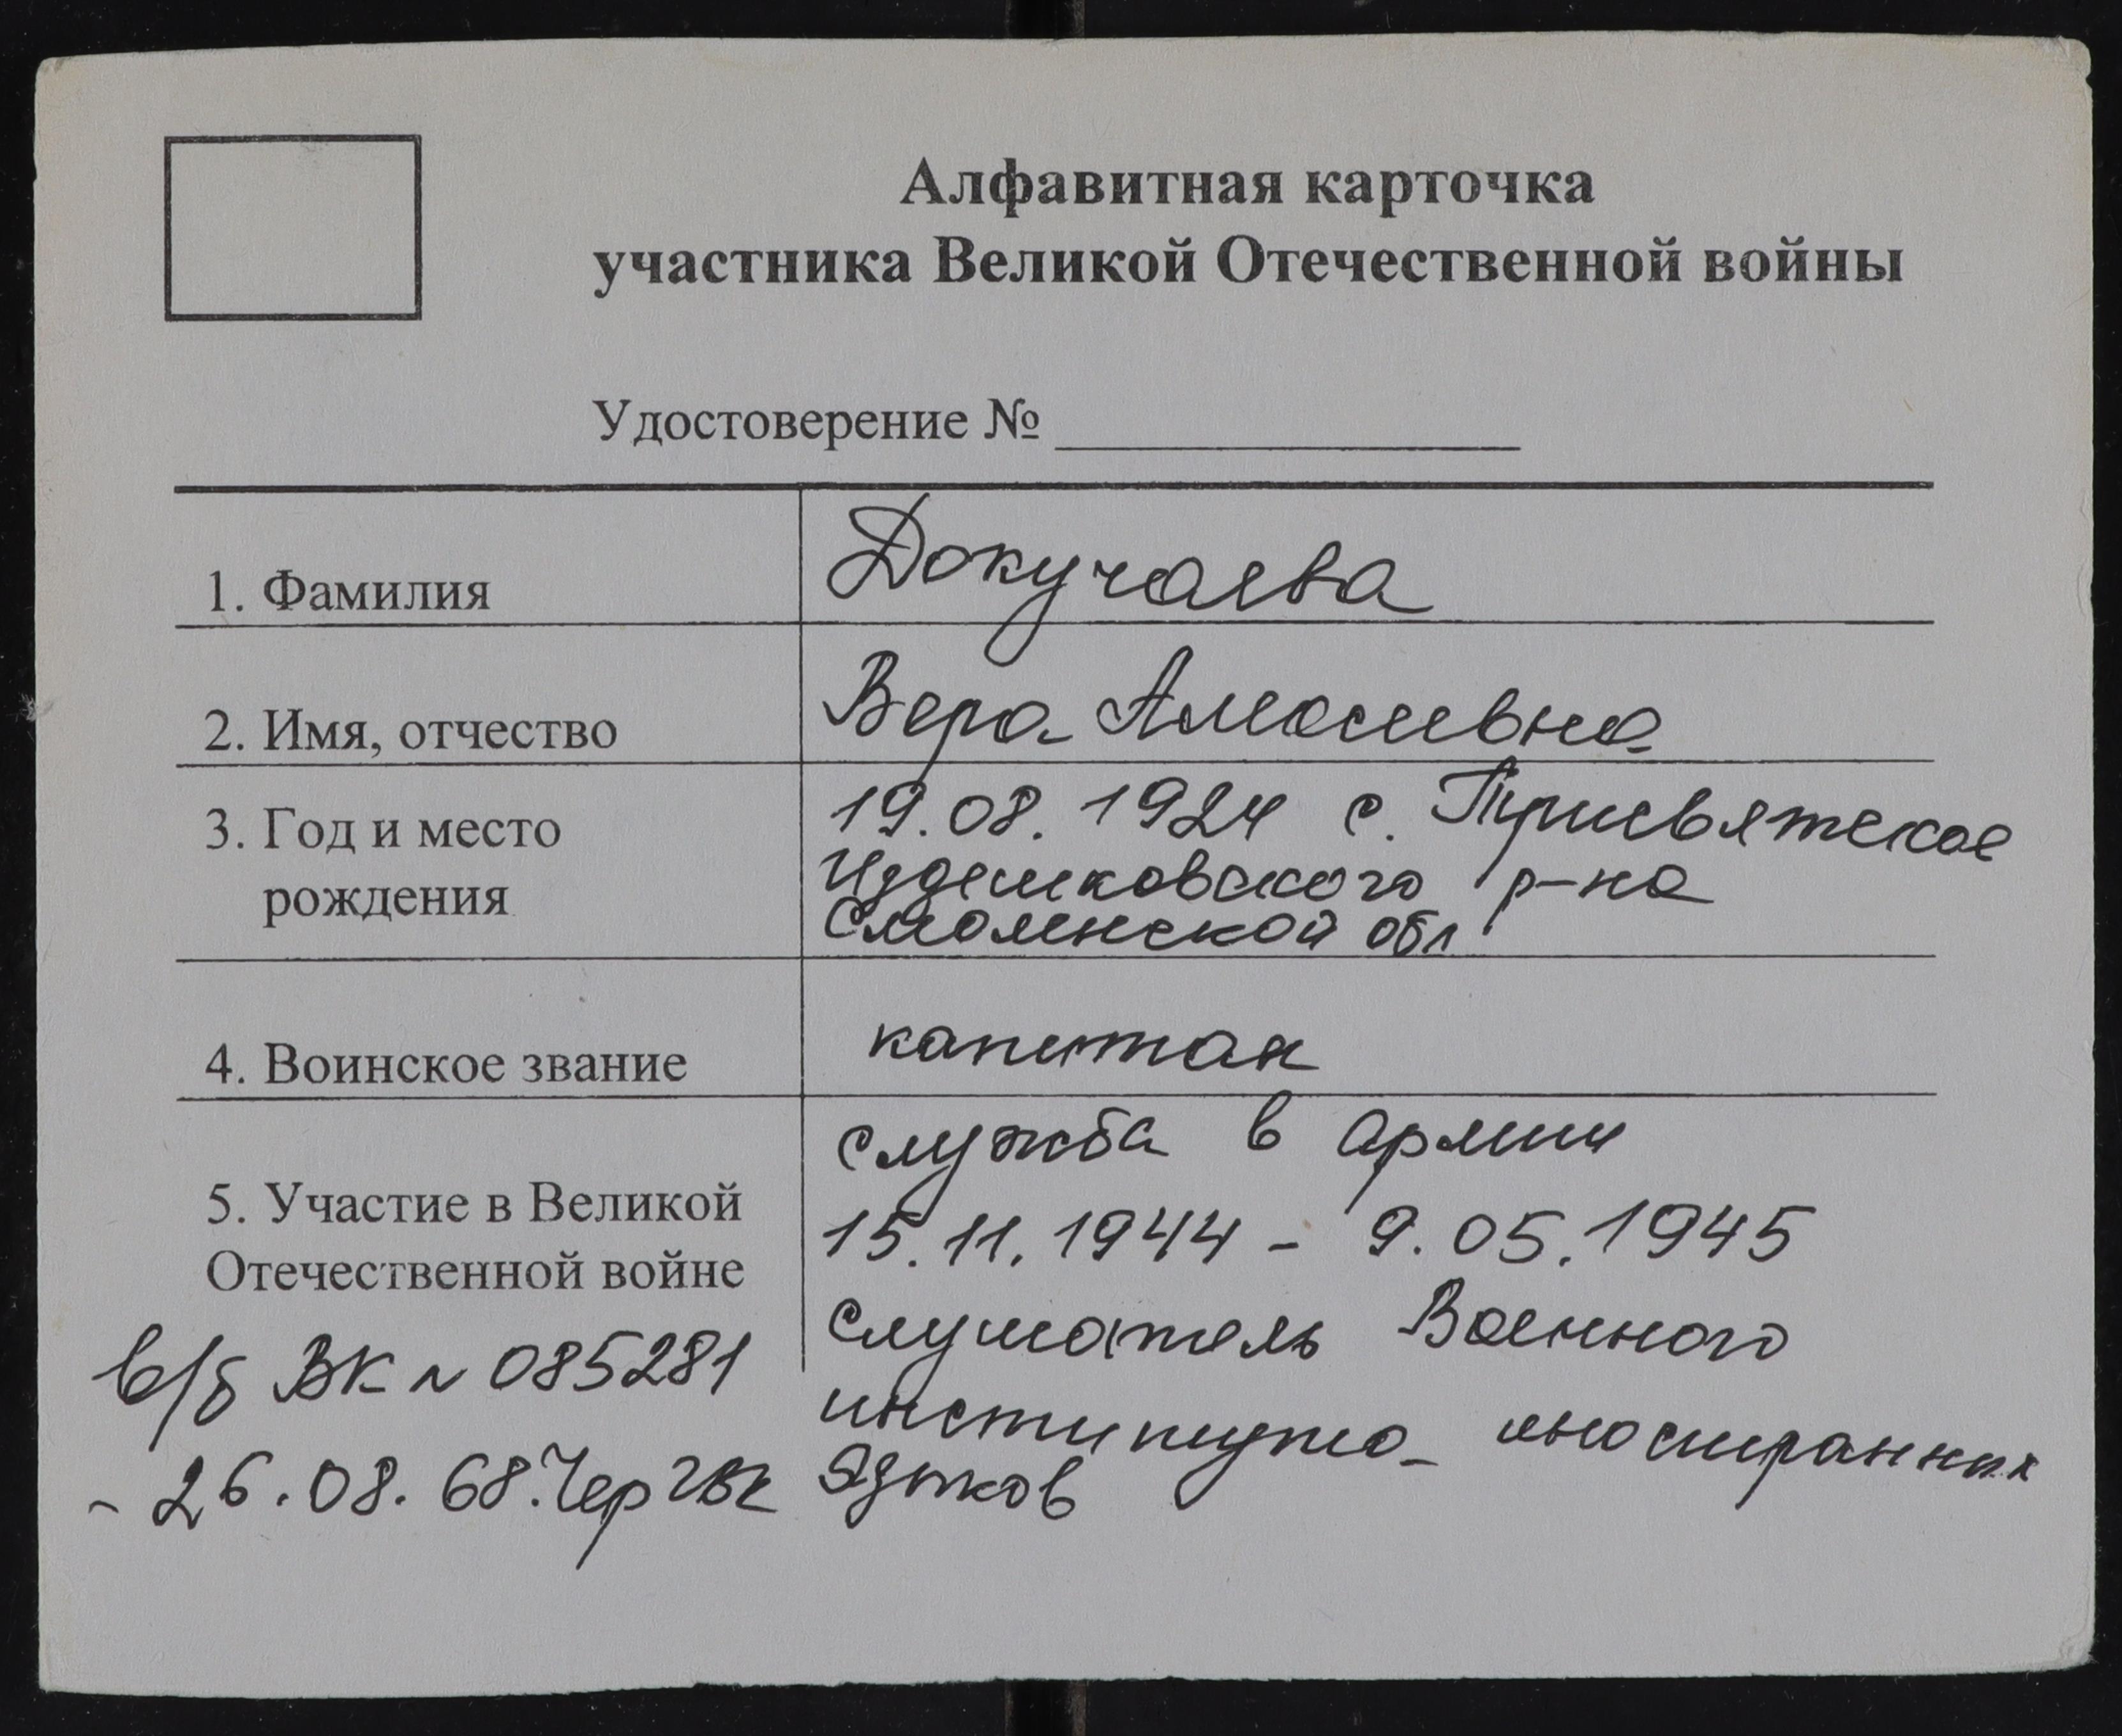 Алфавитная карточка
участника Великой Отечественной войны
Удостоверение №
1. Фамилия
Докучаева
2. Имя, отчество
Вера Амосовна
3. Год и место
рождения
19.08.1924 с. Трисвятское
Издешковского р-на
Смоленской обл.
4. Воинское звание
капитан
5. Участие в Великой
Отечественной войне
служба в армии
15.11.1944 - 9.05.1945
слушатель Военного
института иностранных
языков
в/б ВК № 085281
- 26.08.68. Чер ГВК